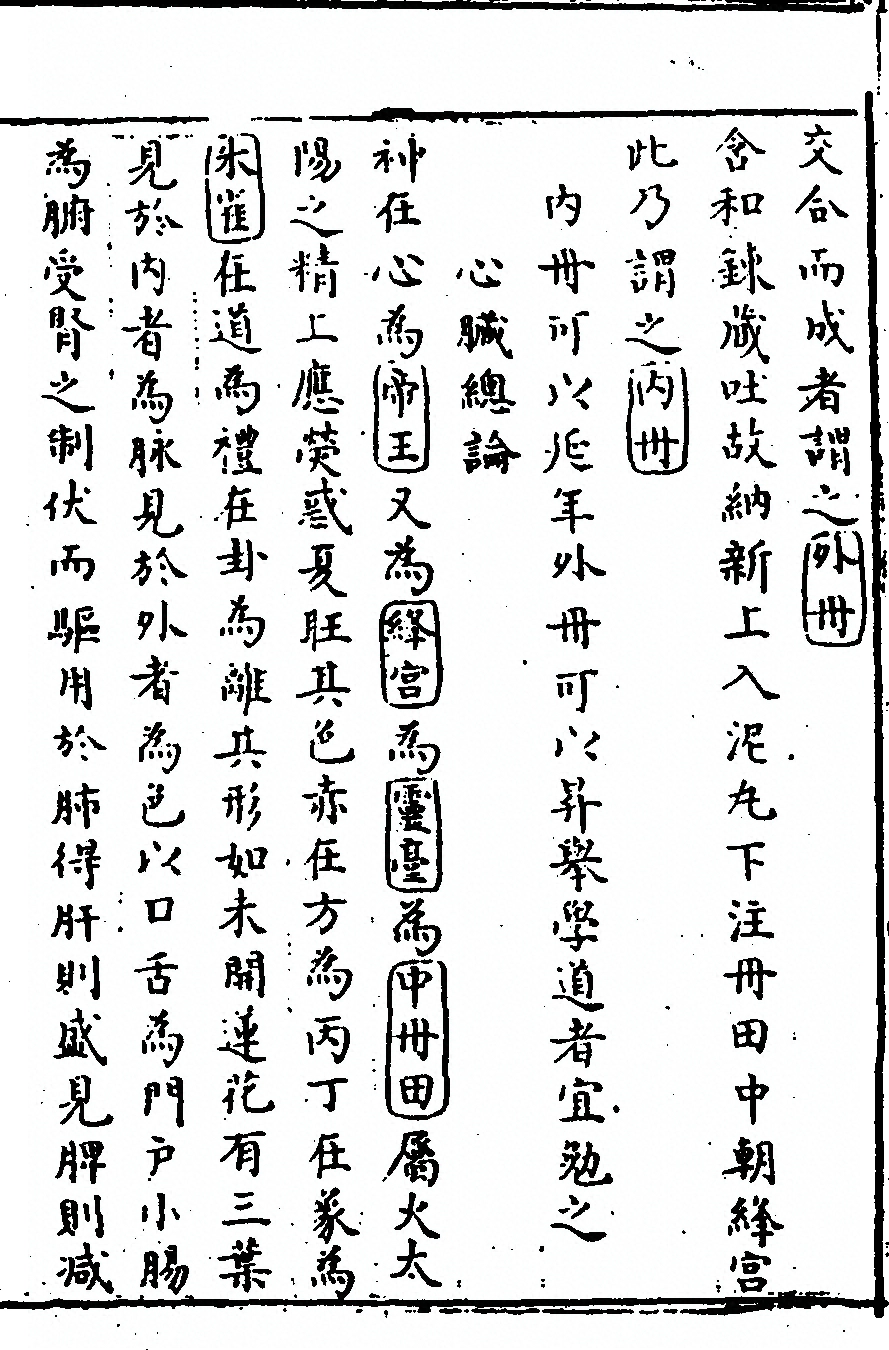 交合而成者謂之外丹
含和錬藏吐故納新上入泥丸下注丹田中朝絳宮
此乃謂之内丹
内丹可以延年外丹可以昇舉學道者宜勉之
心臟總論
神在心為帝王又為絳宮為靈臺為中丹田屬火太
陽之精上應熒惑夏旺其色赤在方為丙丁在象為
朱雀在道為禮在卦為離其形如未開蓮花有三葉
見於内者為脉見於外者為色以口舌為門户小腸
為腑受腎之制伏而驅用於肺得肝則盛見脾則減